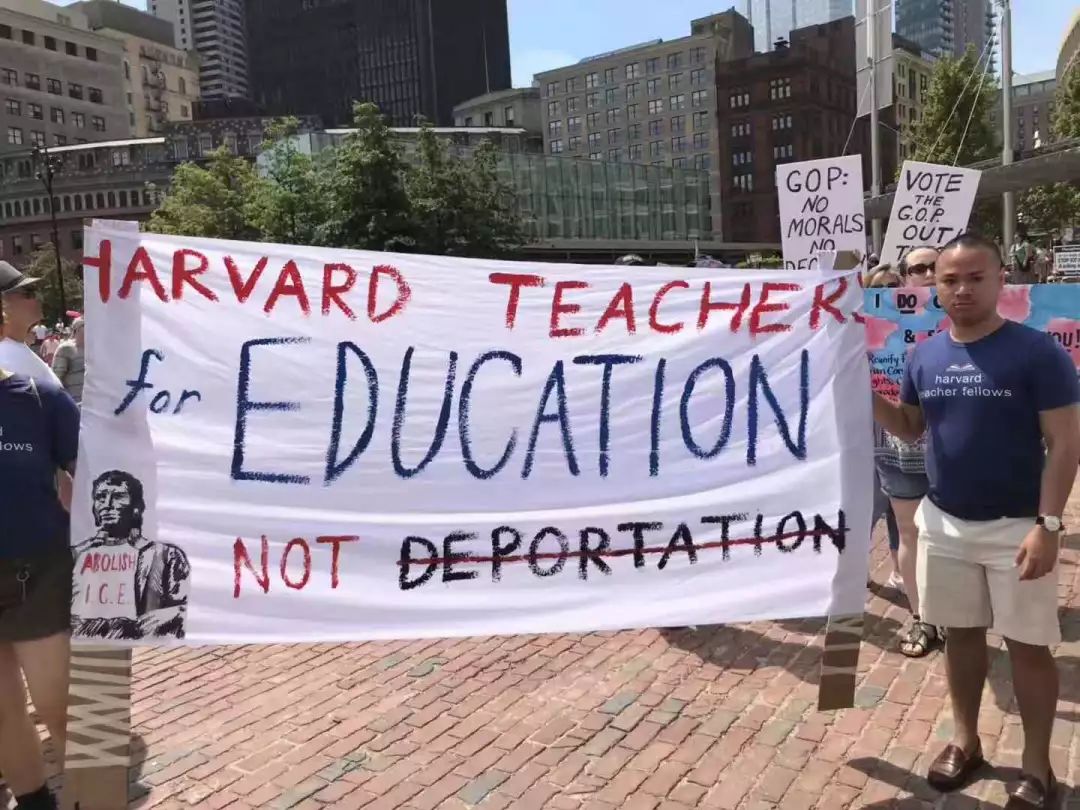 HARVARD TEACHERS
for EDUCATION
NOT DEPORTATION
ABOLISH
I.C.E.
GOP:
NO
MORALS
NO
VOTE
THE
G.O.P.
OUT
I DO
&
YOU!
Reunify
harvard
teacher fellows